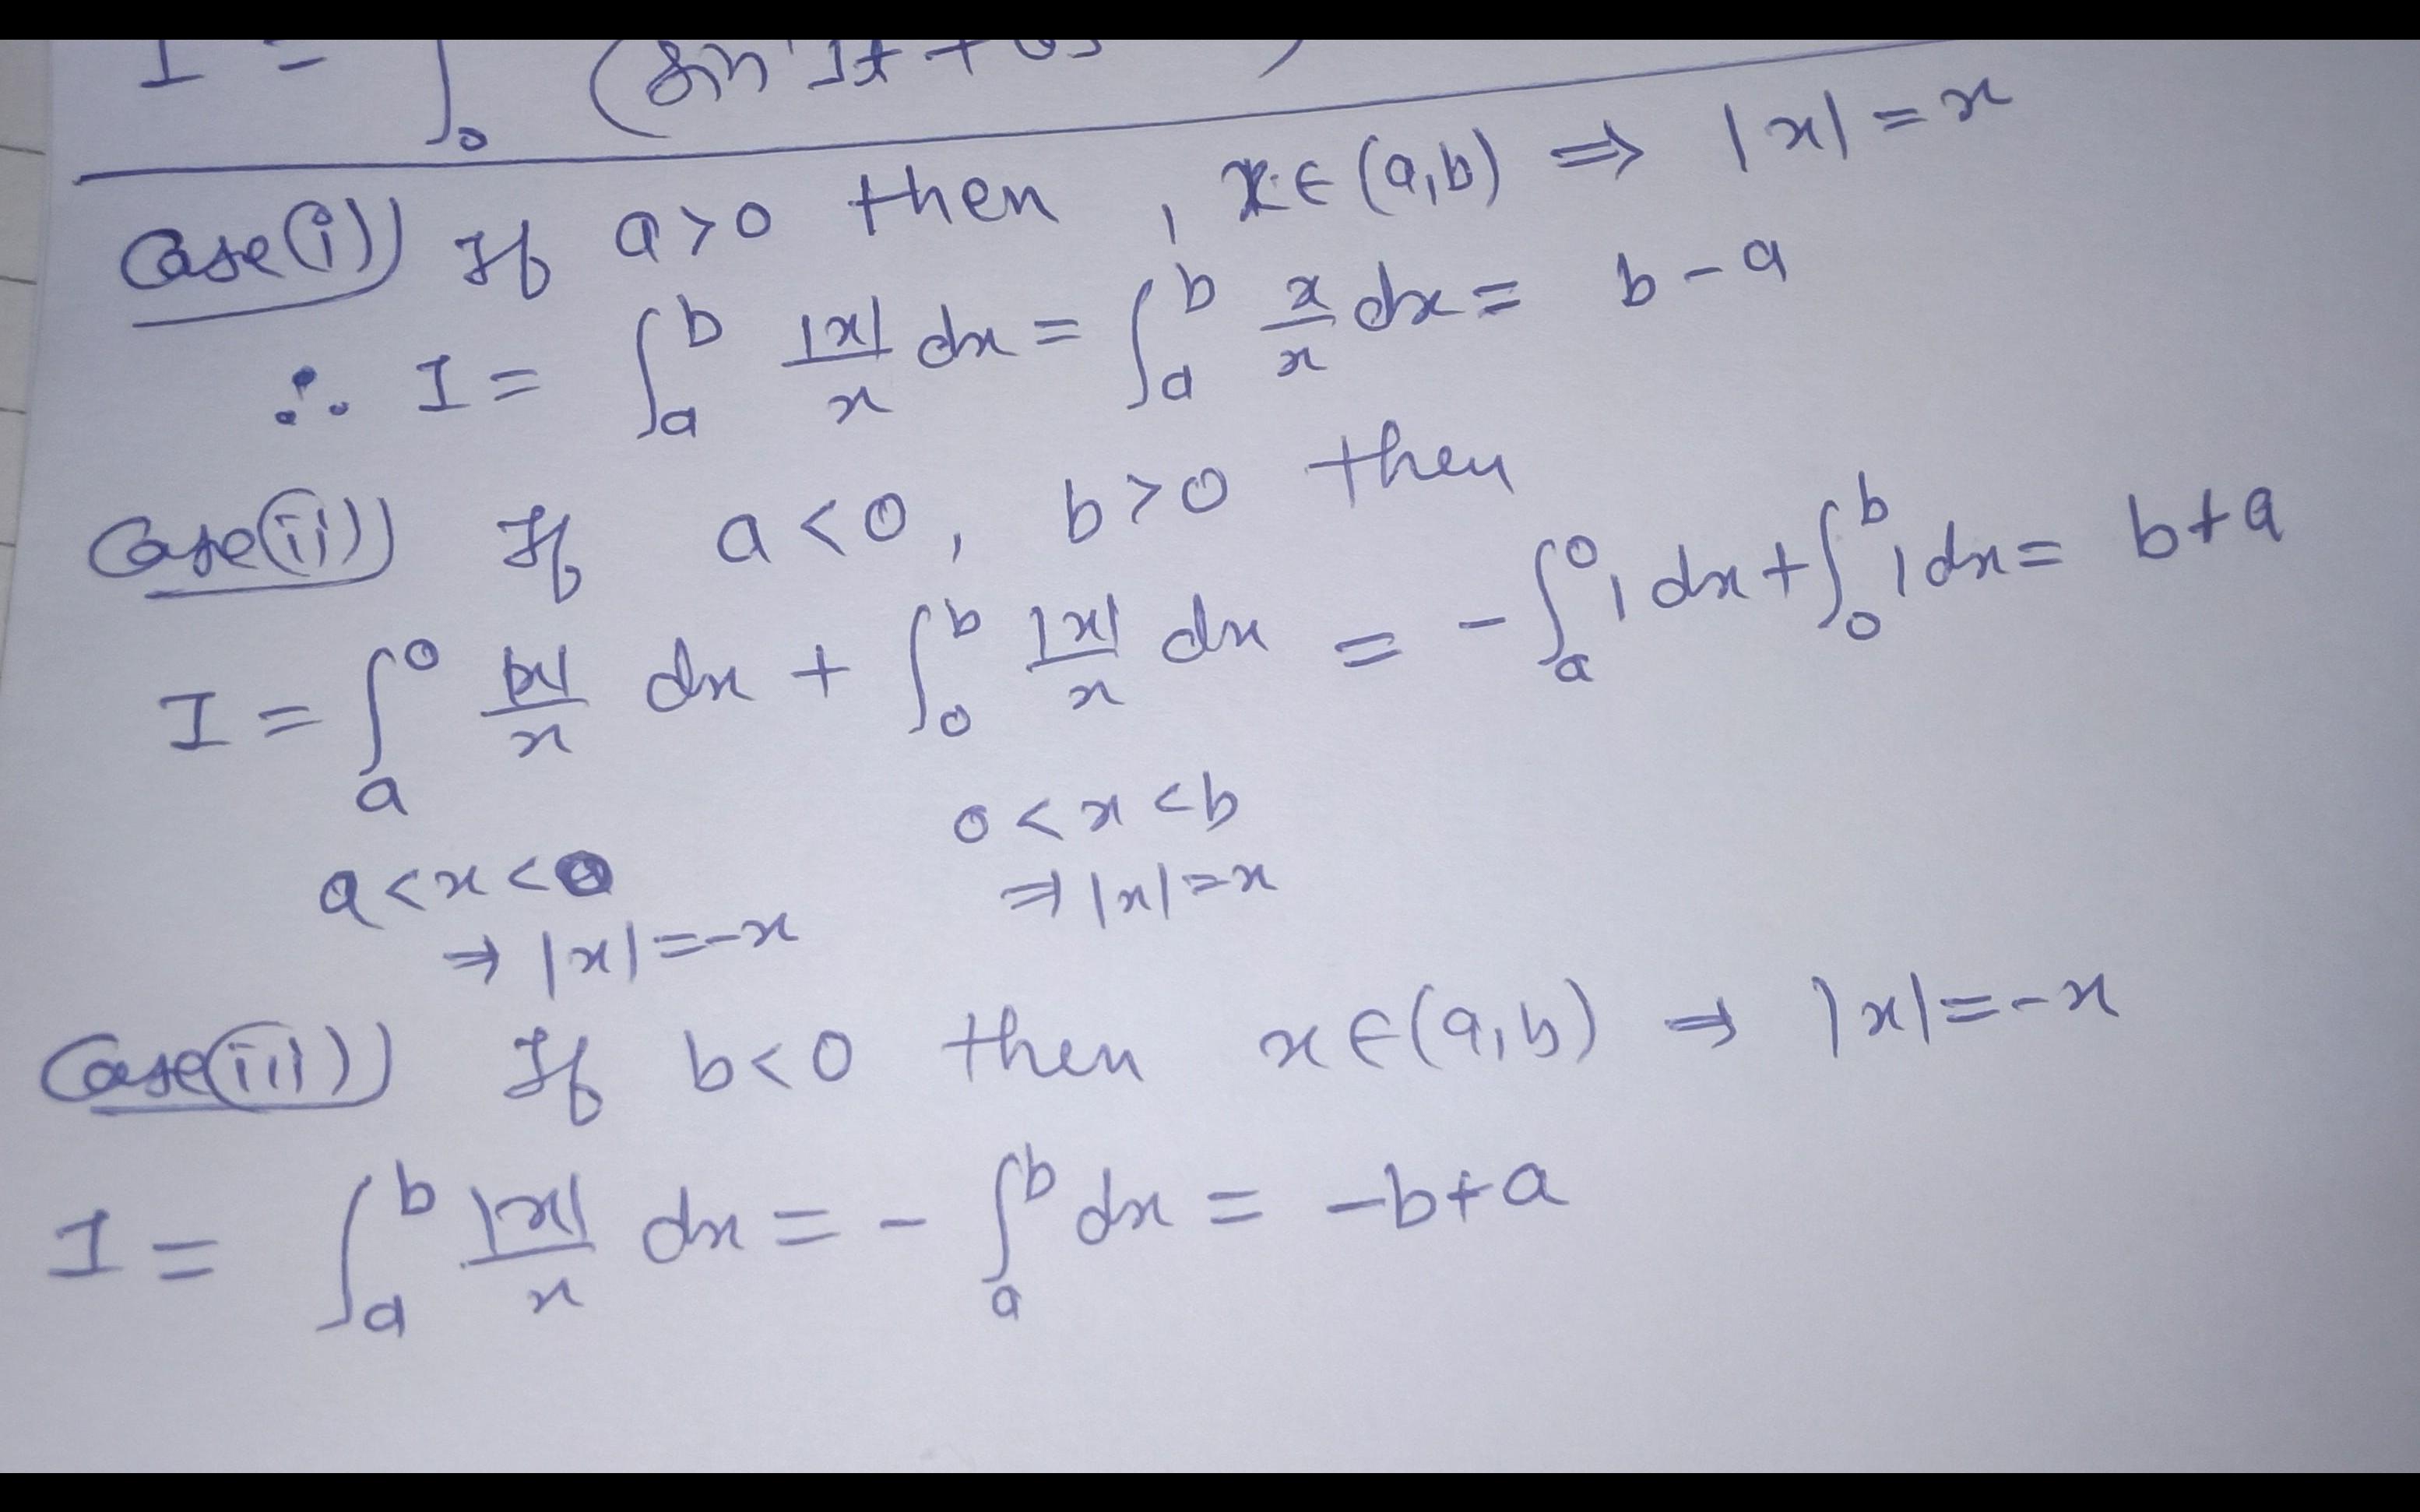 I = ∫₀ (sin
Case(i) If a>0 then , x∈(a,b) ⇒ |x|=x
∴ I = ∫ₐᵇ |x|/x dx = ∫ₐᵇ x/x dx = b-a
Case(ii) If a<0, b>0 then
I = ∫ₐ⁰ |x|/x dx + ∫₀ᵇ |x|/x dx = -∫ₐ⁰ 1 dx + ∫₀ᵇ 1 dx = b+a
a<x<0 0<x<b
⇒ |x|=-x ⇒ |x|=x
Case(iii) If b<0 then x∈(a,b) ⇒ |x|=-x
I = ∫ₐᵇ |x|/x dx = - ∫ₐᵇ dx = -b+a